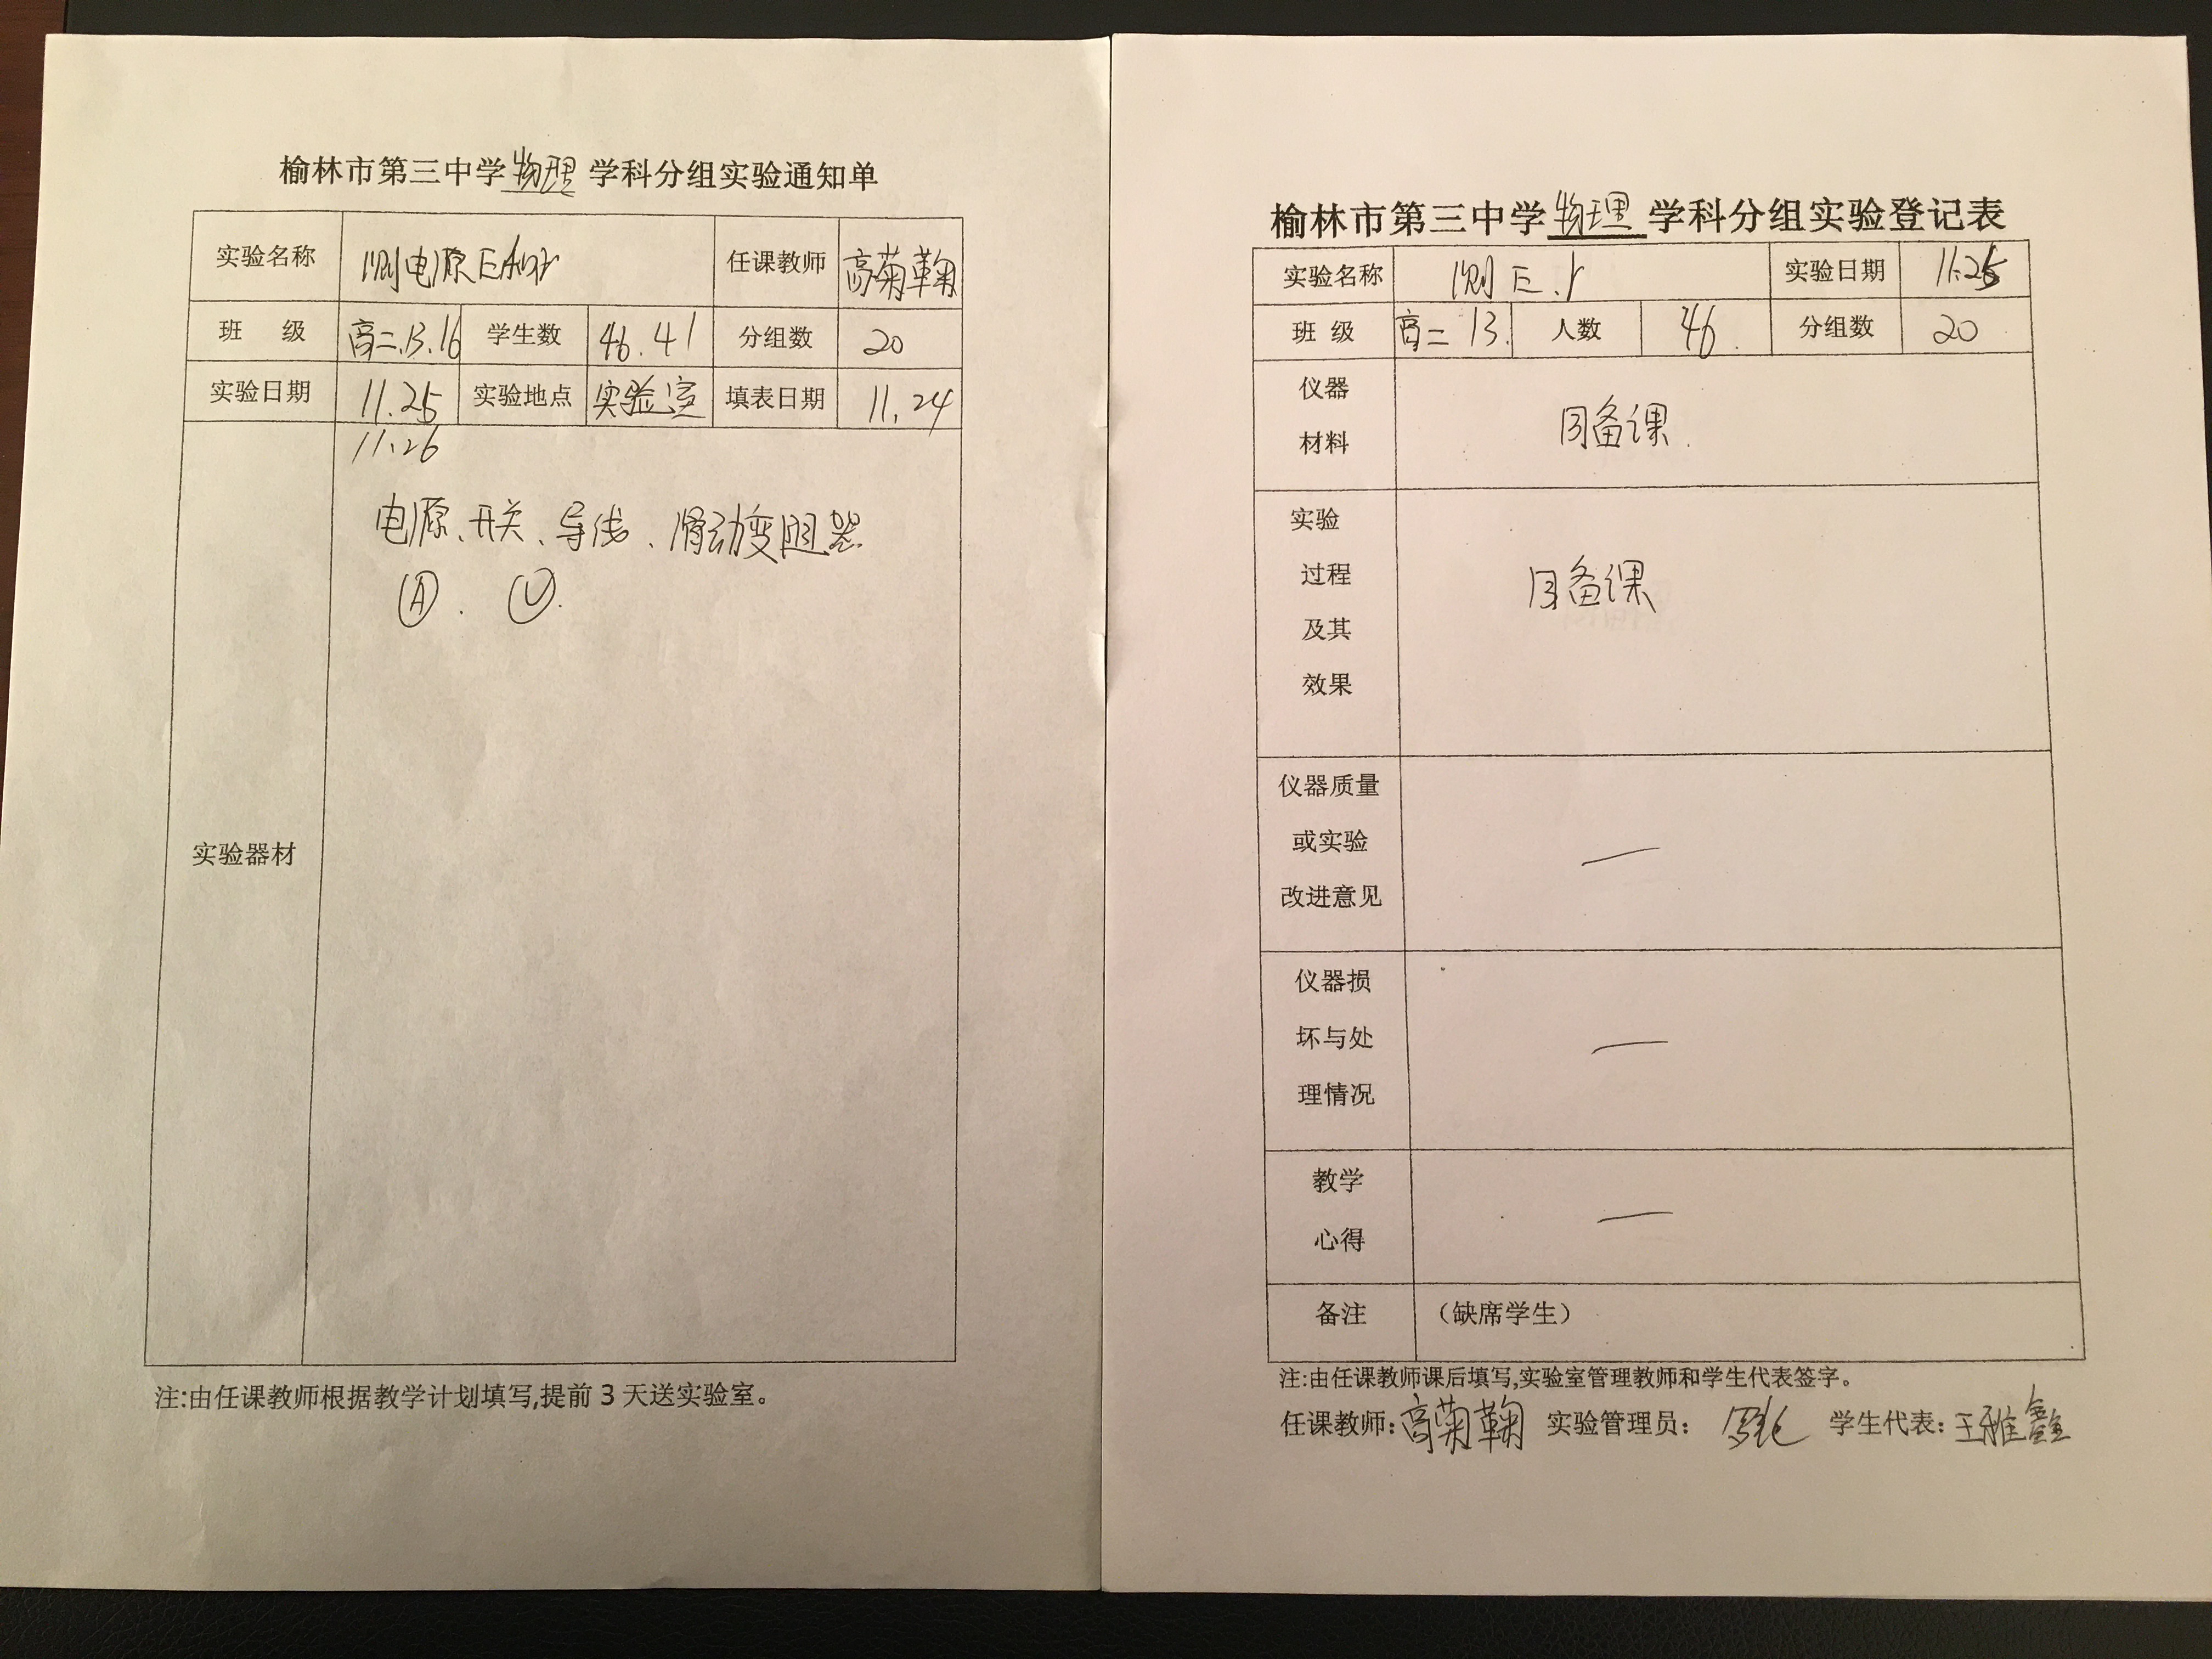 榆林市第三中学物理学科分组实验通知单
实验名称 测电源E和r 任课教师 高菊鞠
班 级 高二.13.16 学生数 46.41 分组数 20
实验日期 11.25 实验地点 实验室 填表日期 11.24
11.26
电源、开关、导线、滑动变阻器
Ⓐ. Ⓥ.
实验器材
注:由任课教师根据教学计划填写,提前3天送实验室。
榆林市第三中学物理学科分组实验登记表
实验名称 测E.r 实验日期 11.25
班 级 高二 13. 人数 46. 分组数 20
仪器
材料
同备课.
实验
过程
及其
效果
同备课
仪器质量
或实验
改进意见
—
仪器损
坏与处
理情况
—
教学
心得
—
备注 (缺席学生)
注:由任课教师课后填写,实验室管理教师和学生代表签字。
任课教师:高菊鞠 实验管理员: 学生代表:王雅鑫